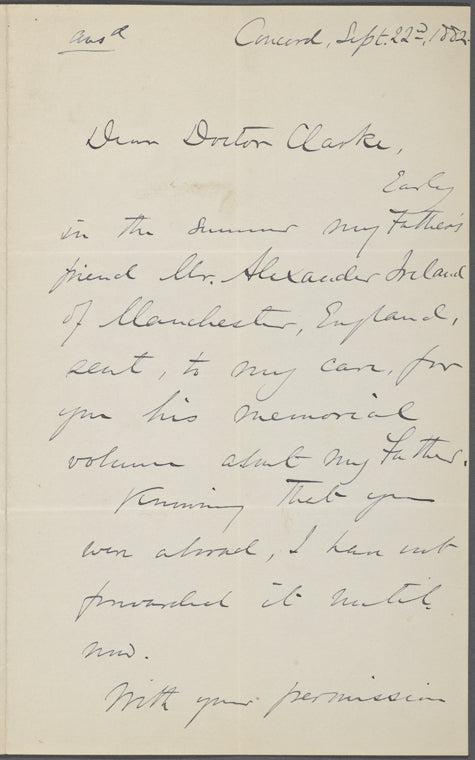 ansd
Concord, Sept. 22nd, 1882.
Dear Doctor Clarke,
Early
in the summer my Father's
friend Mr. Alexander Ireland
of Manchester, England,
sent, to my care, for
you his memorial
volume about my Father.
Knowing that you
were abroad, I have not
forwarded it until
now.
With your permission